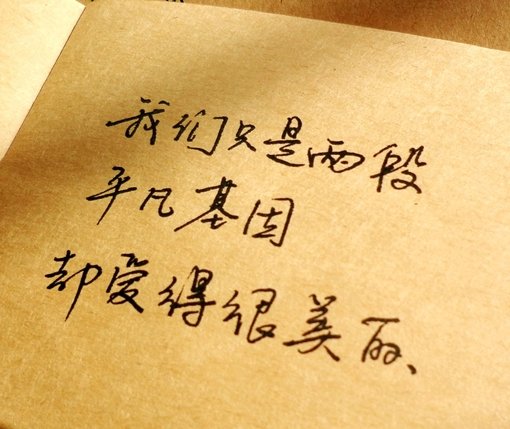 我们只是两段
平凡基因
却爱得很美丽、